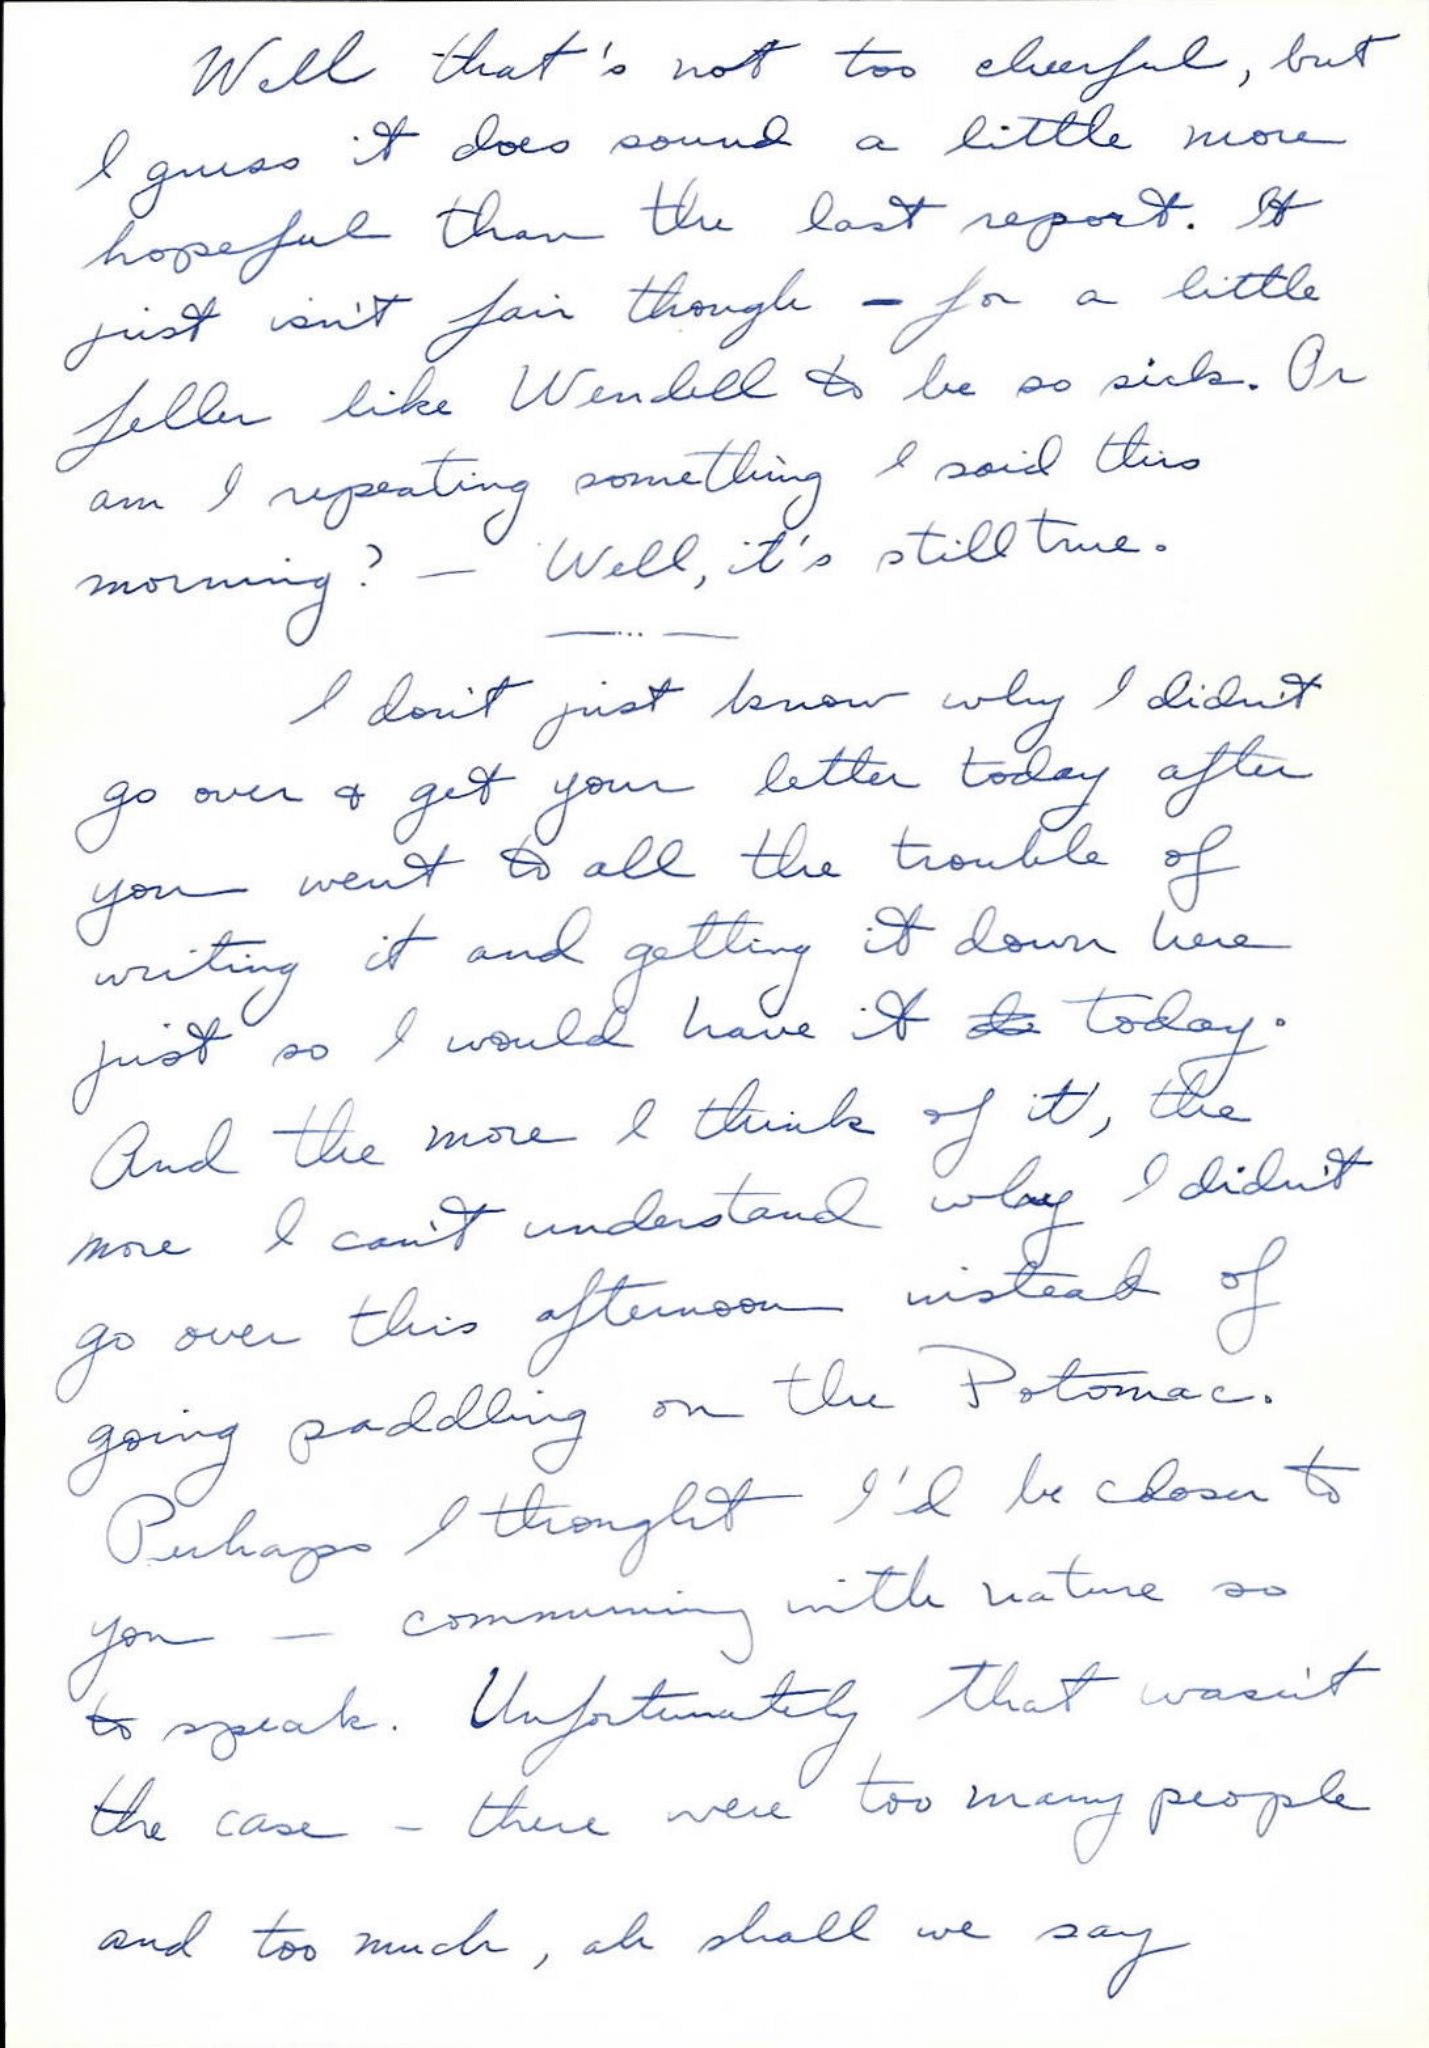 Well that's not too cheerful, but
I guess it does sound a little more
hopeful than the last report. It
just isn't fair though – for a little
feller like Wendell to be so sick. Or
am I repeating something I said this
morning? — Well, it's still true.
—...—
I don't just know why I didn't
go over & get your letter today after
you went to all the trouble of
writing it and getting it down here
just so I would have it today.
And the more I think of it, the
more I can't understand why I didn't
go over this afternoon instead of
going paddling on the Potomac.
Perhaps I thought I'd be closer to
you — communing with nature so
to speak. Unfortunately that wasn't
the case – there were too many people
and too much, ah shall we say